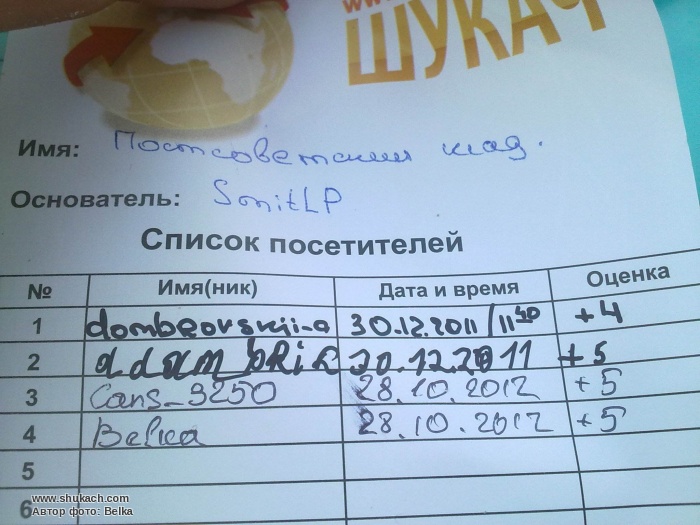 ШУКАЧ
Имя: Постсоветский клад.
Основатель: SmitLP
Список посетителей
№ Имя(ник) Дата и время Оценка
1 dombrovskii-a 30.12.2011/11 40 +4
2 30.12.2011 +5
3 Cans_9250 28.10.2012 +5
4 Belka 28.10.2012 +5
5
6
www.shukach.com
Автор фото: Belka